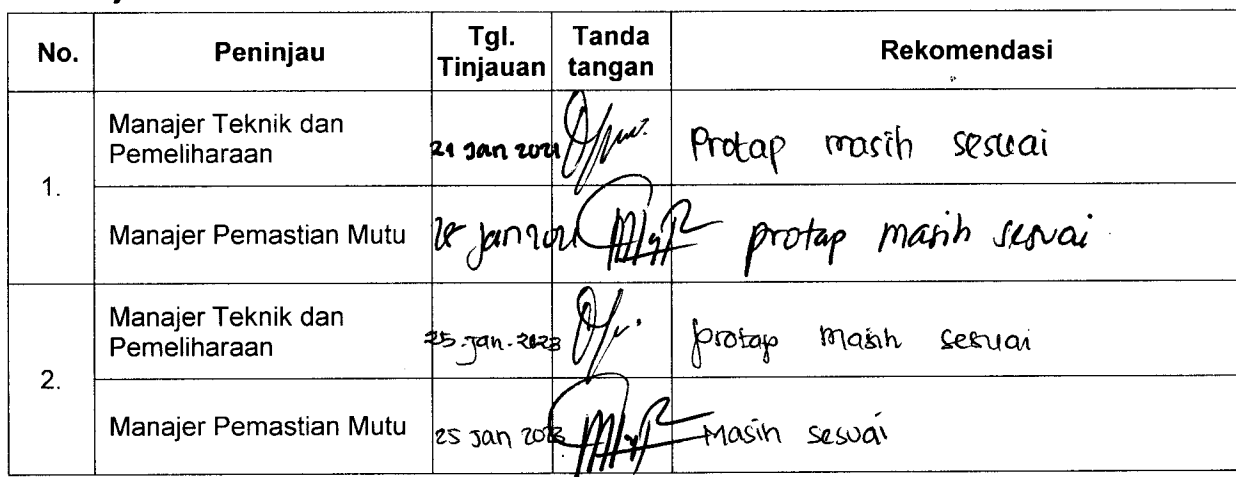 No. Peninjau Tgl. Tinjauan Tanda tangan Rekomendasi
1.
Manajer Teknik dan Pemeliharaan 21 Jan 2021 Protap masih sesuai
Manajer Pemastian Mutu Jan 2021 protap masih sesuai
2.
Manajer Teknik dan Pemeliharaan 25-Jan-2023 protap masih sesuai
Manajer Pemastian Mutu 25 Jan 2023 Masih sesuai